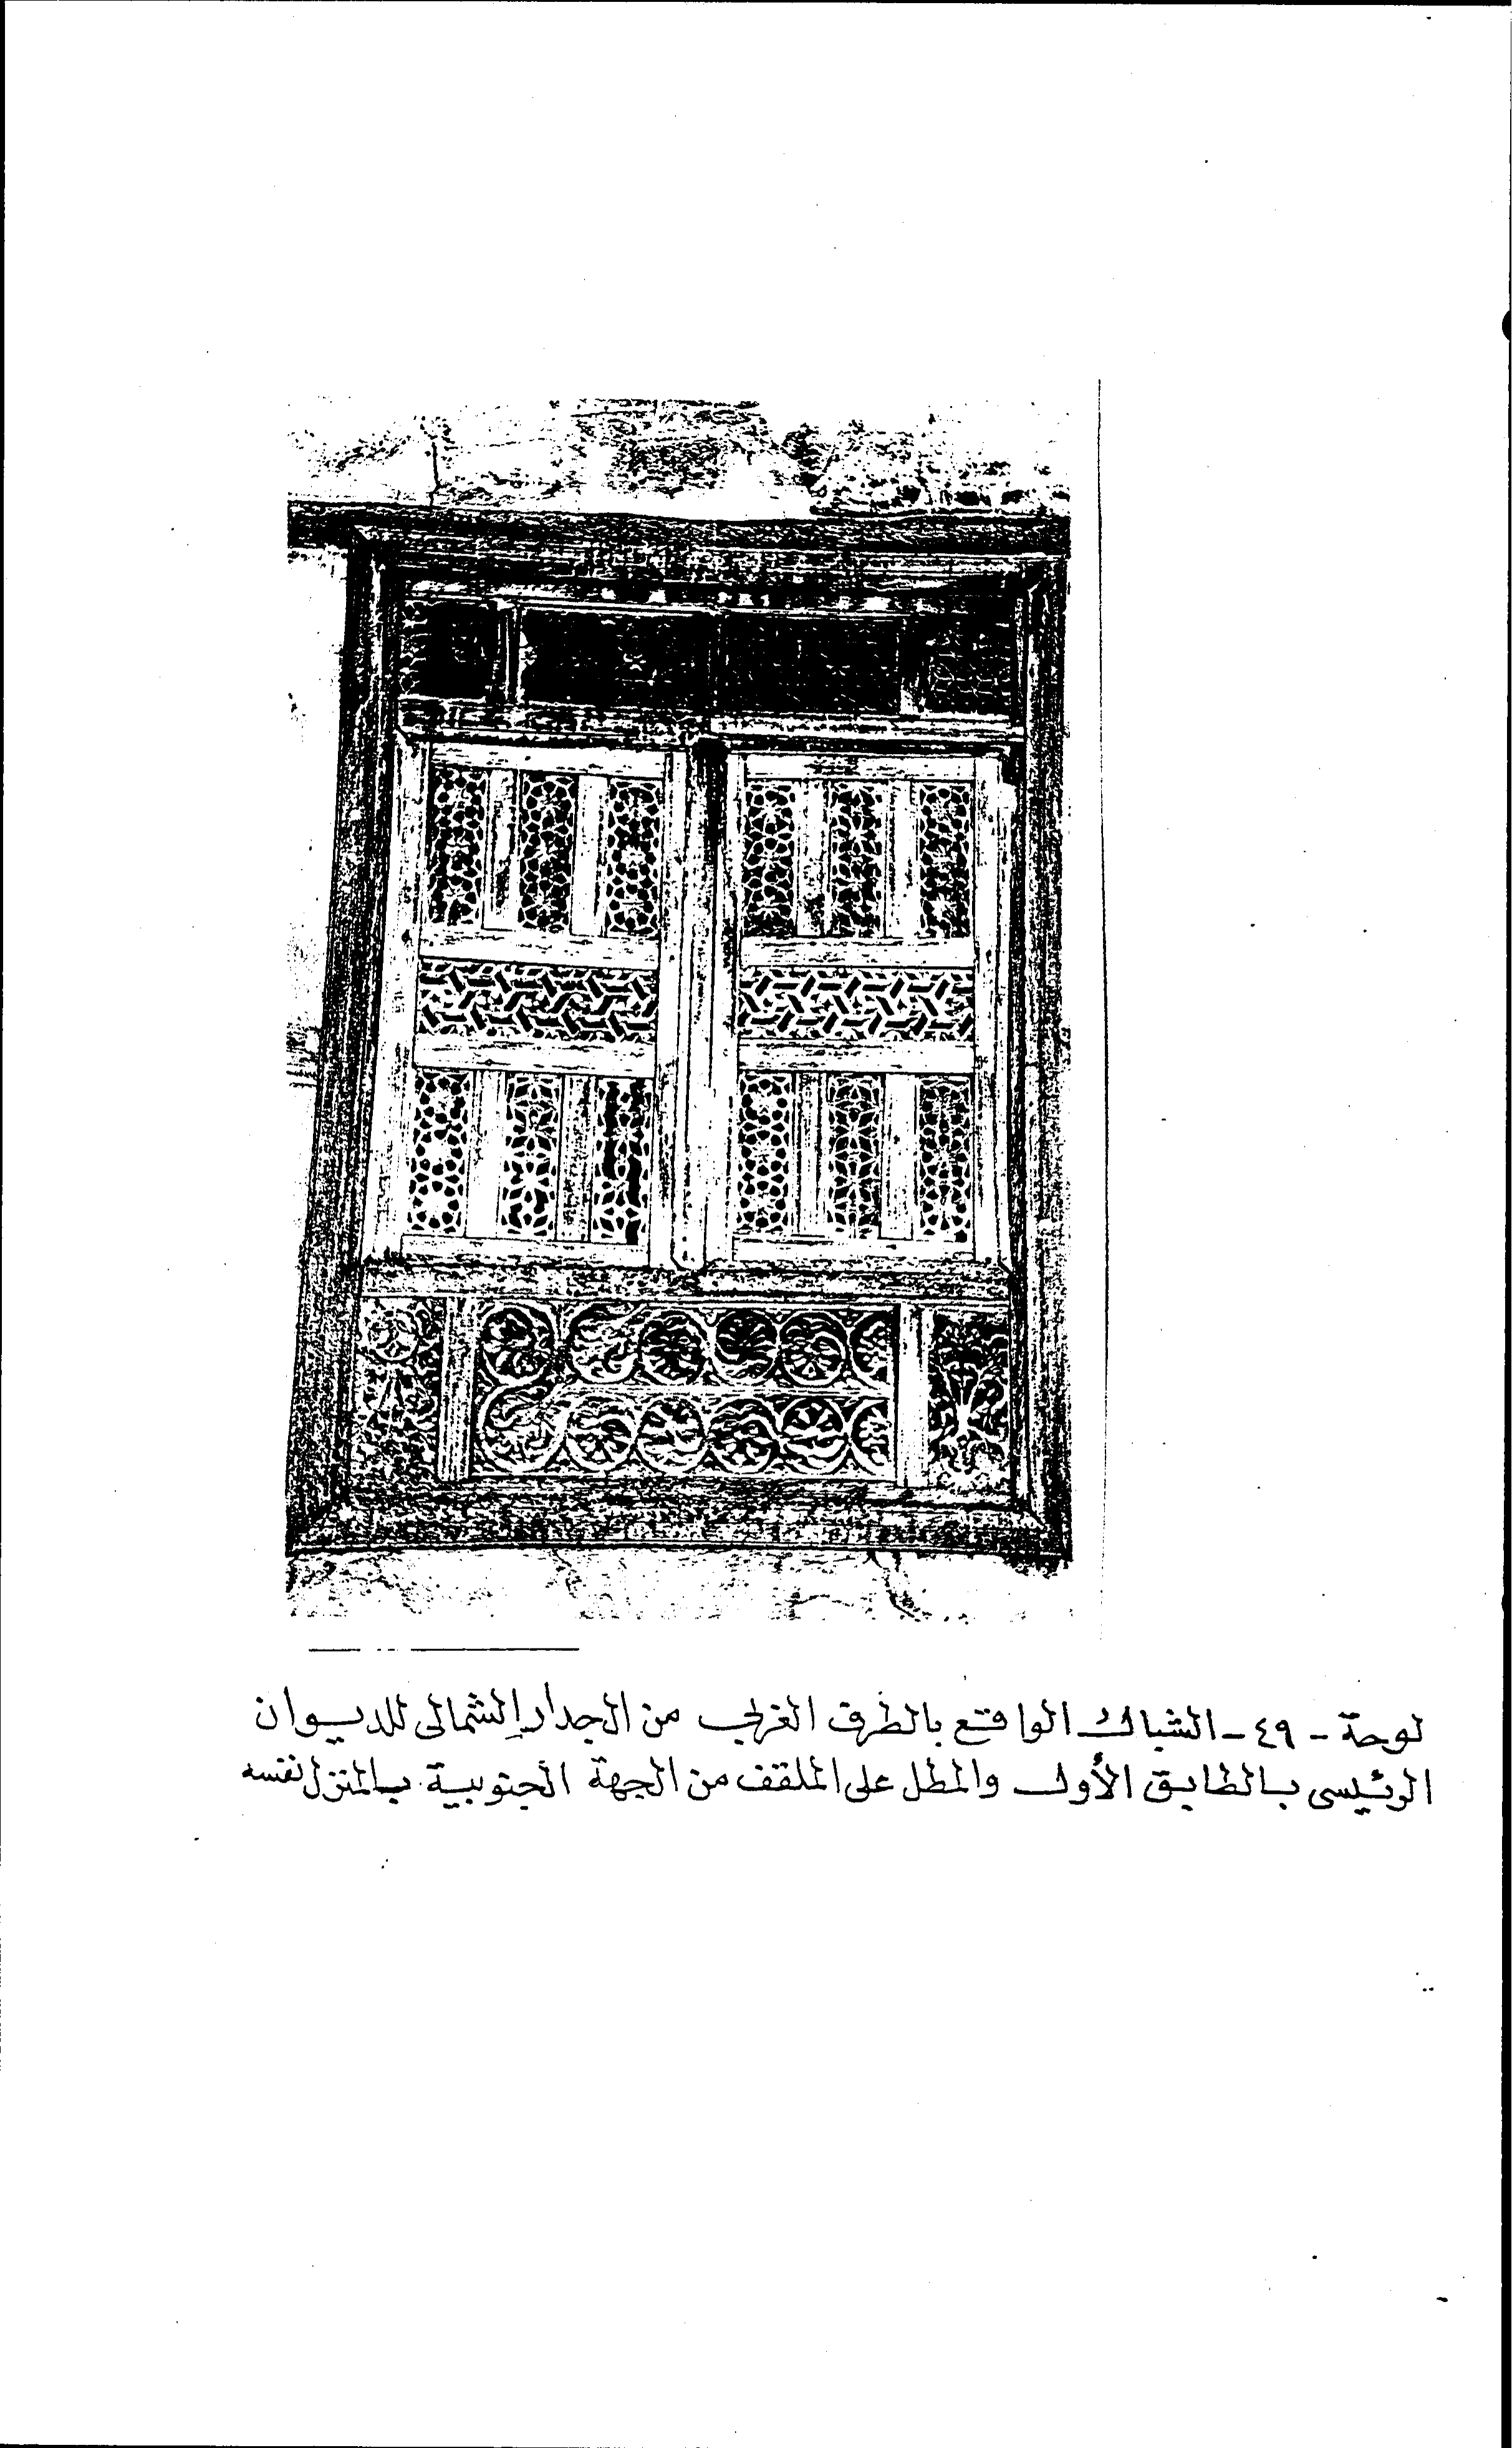 لوحة - ٤٩ - الشباك الواقع بالطرف الغربي من الجدار الشمالى للديوان
الرئيسى بالطابق الأول والمطل على الملقف من الجهة الجنوبية بالمنزل نفسه